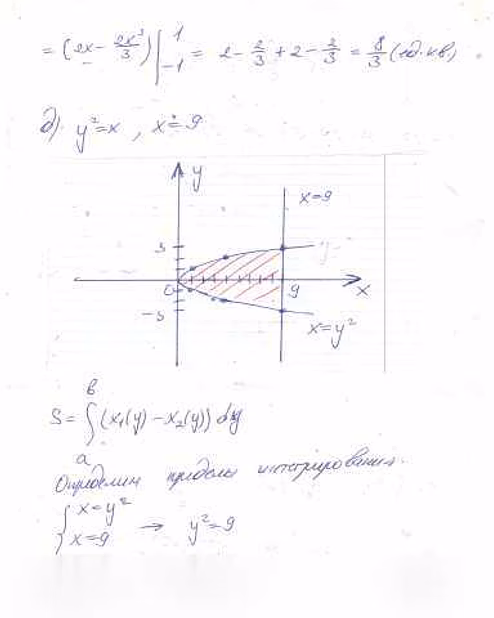 = (2x - 2x³/3) |¹₋₁ = 2 - 2/3 + 2 - 2/3 = 8/3 (ед.кв)
д). y²=x , x=9
y
x=9
3
0
9
x
-3
x=y²
S = ∫ₐᵇ (x₁(y) - x₂(y)) dy
Определим пределы интегрирования.
{ x=y²
{ x=9 → y²=9